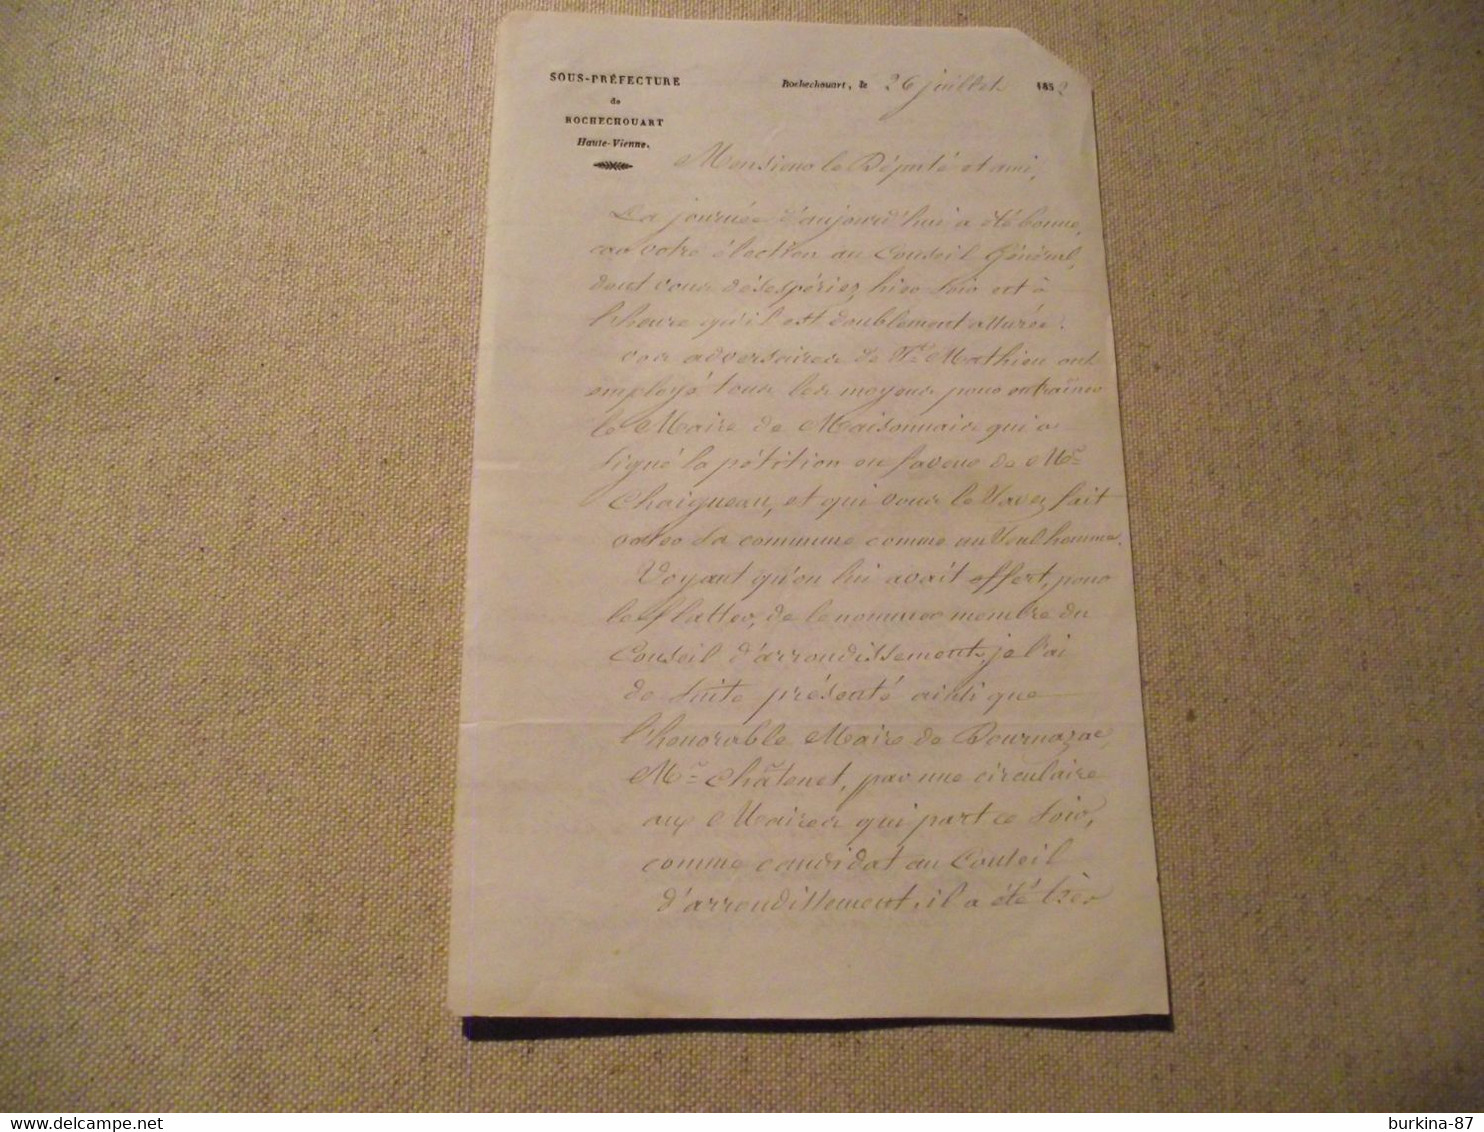 SOUS-PRÉFECTURE
de
ROCHECHOUART
Haute-Vienne.
Rochechouart, le 26 juillet 1852
Monsieur le Député et ami,
La journée d'aujourd'hui a été bonne,
car votre élection au Conseil Général,
dont vous désespériez, hier soir est à
l'heure qu'il est doublement assurée.
vos adversaires de St Mathieu ont
employé tous les moyens pour entraîner
le Maire de Maisonnais qui a
signé la pétition en faveur de Mr
Chaigneau, et qui vous le savez fait
voter sa commune comme un seul homme.
Voyant qu'on lui avait offert, pour
le flatter, de le nommer membre du
Conseil d'arrondissement, je l'ai
de suite présenté ainsi que
l'honorable Maire de Pournazac,
Mr Châtenet, par une circulaire
aux Maires qui part ce soir,
comme candidat au Conseil
d'arrondissement, il a été très
burkina-87